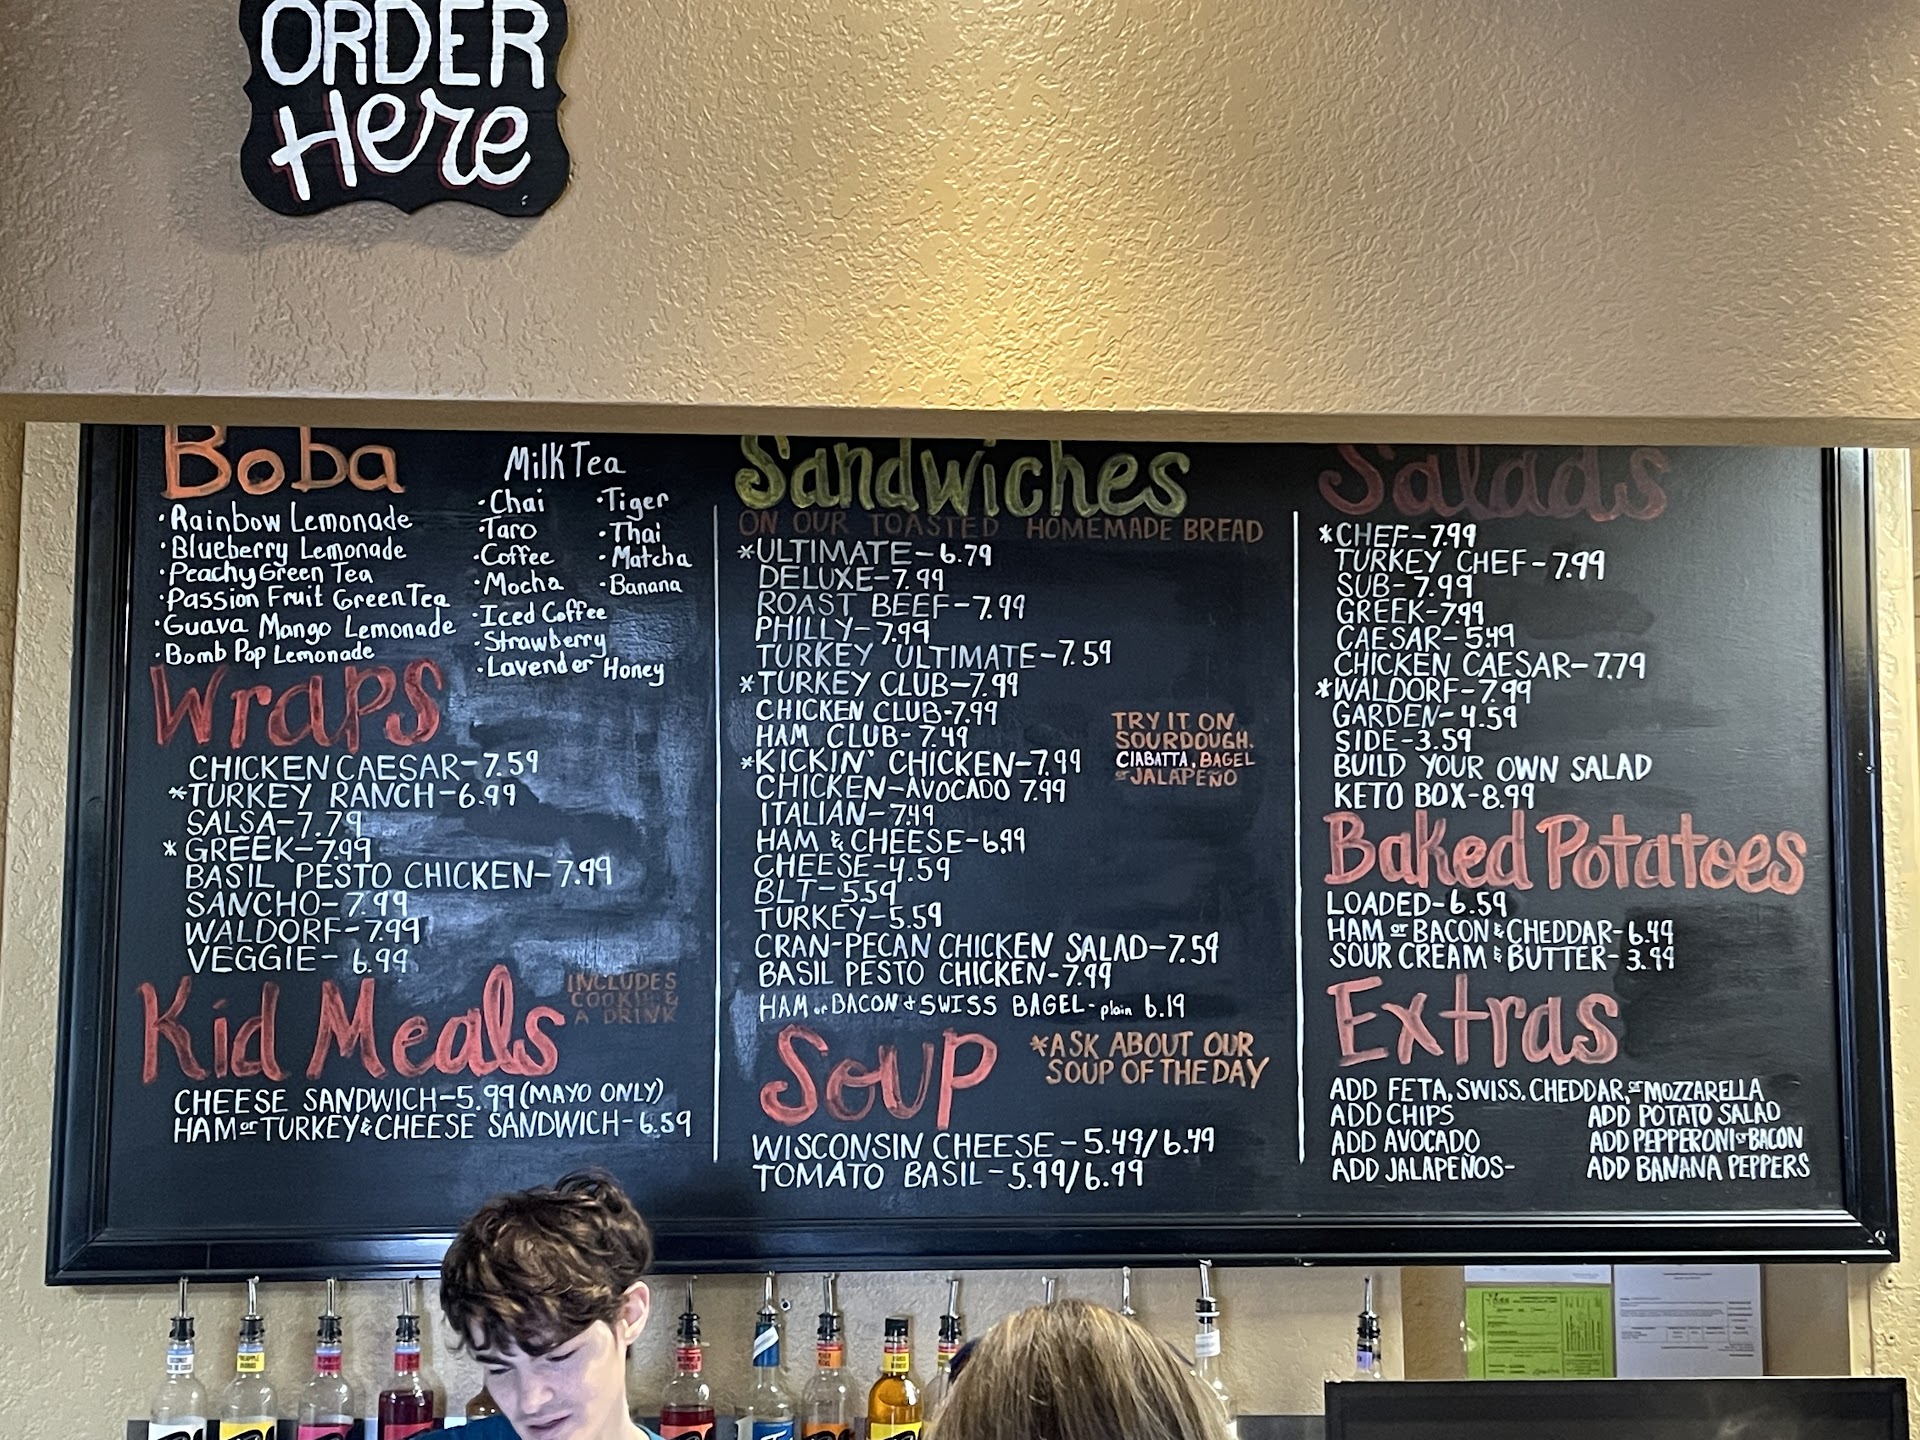 ORDER
Here
Boba
· Rainbow Lemonade
· Blueberry Lemonade
· Peachy Green Tea
· Passion Fruit Green Tea
· Guava Mango Lemonade
· Bomb Pop Lemonade
Milk Tea
· Chai
· Taro
· Coffee
· Mocha
· Iced Coffee
· Strawberry
· Lavender Honey
· Tiger
· Thai
· Matcha
· Banana
Wraps
CHICKEN CAESAR-7.59
*TURKEY RANCH-6.99
SALSA-7.79
*GREEK-7.99
BASIL PESTO CHICKEN-7.99
SANCHO-7.99
WALDORF-7.99
VEGGIE-6.99
Kid Meals
INCLUDES
COOKIE &
A DRINK
CHEESE SANDWICH-5.99 (MAYO ONLY)
HAM or TURKEY & CHEESE SANDWICH-6.59
Sandwiches
ON OUR TOASTED HOMEMADE BREAD
*ULTIMATE-6.79
DELUXE-7.99
ROAST BEEF-7.99
PHILLY-7.99
TURKEY ULTIMATE-7.59
*TURKEY CLUB-7.99
CHICKEN CLUB-7.99
HAM CLUB-7.49
*KICKIN' CHICKEN-7.99
CHICKEN-AVOCADO 7.99
ITALIAN-7.49
HAM & CHEESE-6.99
CHEESE-4.59
BLT-5.59
TURKEY-5.59
CRAN-PECAN CHICKEN SALAD-7.59
BASIL PESTO CHICKEN-7.99
HAM or BACON & SWISS BAGEL-plain 6.19
TRY IT ON
SOURDOUGH,
CIABATTA, BAGEL
or JALAPEÑO
Soup
*ASK ABOUT OUR
SOUP OF THE DAY
WISCONSIN CHEESE-5.49/6.49
TOMATO BASIL-5.99/6.99
Salads
*CHEF-7.99
TURKEY CHEF-7.99
SUB-7.99
GREEK-7.99
CAESAR-5.49
CHICKEN CAESAR-7.79
*WALDORF-7.99
GARDEN-4.59
SIDE-3.59
BUILD YOUR OWN SALAD
KETO BOX-8.99
Baked Potatoes
LOADED-6.59
HAM or BACON & CHEDDAR-6.49
SOUR CREAM & BUTTER-3.99
Extras
ADD FETA, SWISS, CHEDDAR, or MOZZARELLA
ADD CHIPS
ADD AVOCADO
ADD JALAPEÑOS-
ADD POTATO SALAD
ADD PEPPERONI or BACON
ADD BANANA PEPPERS